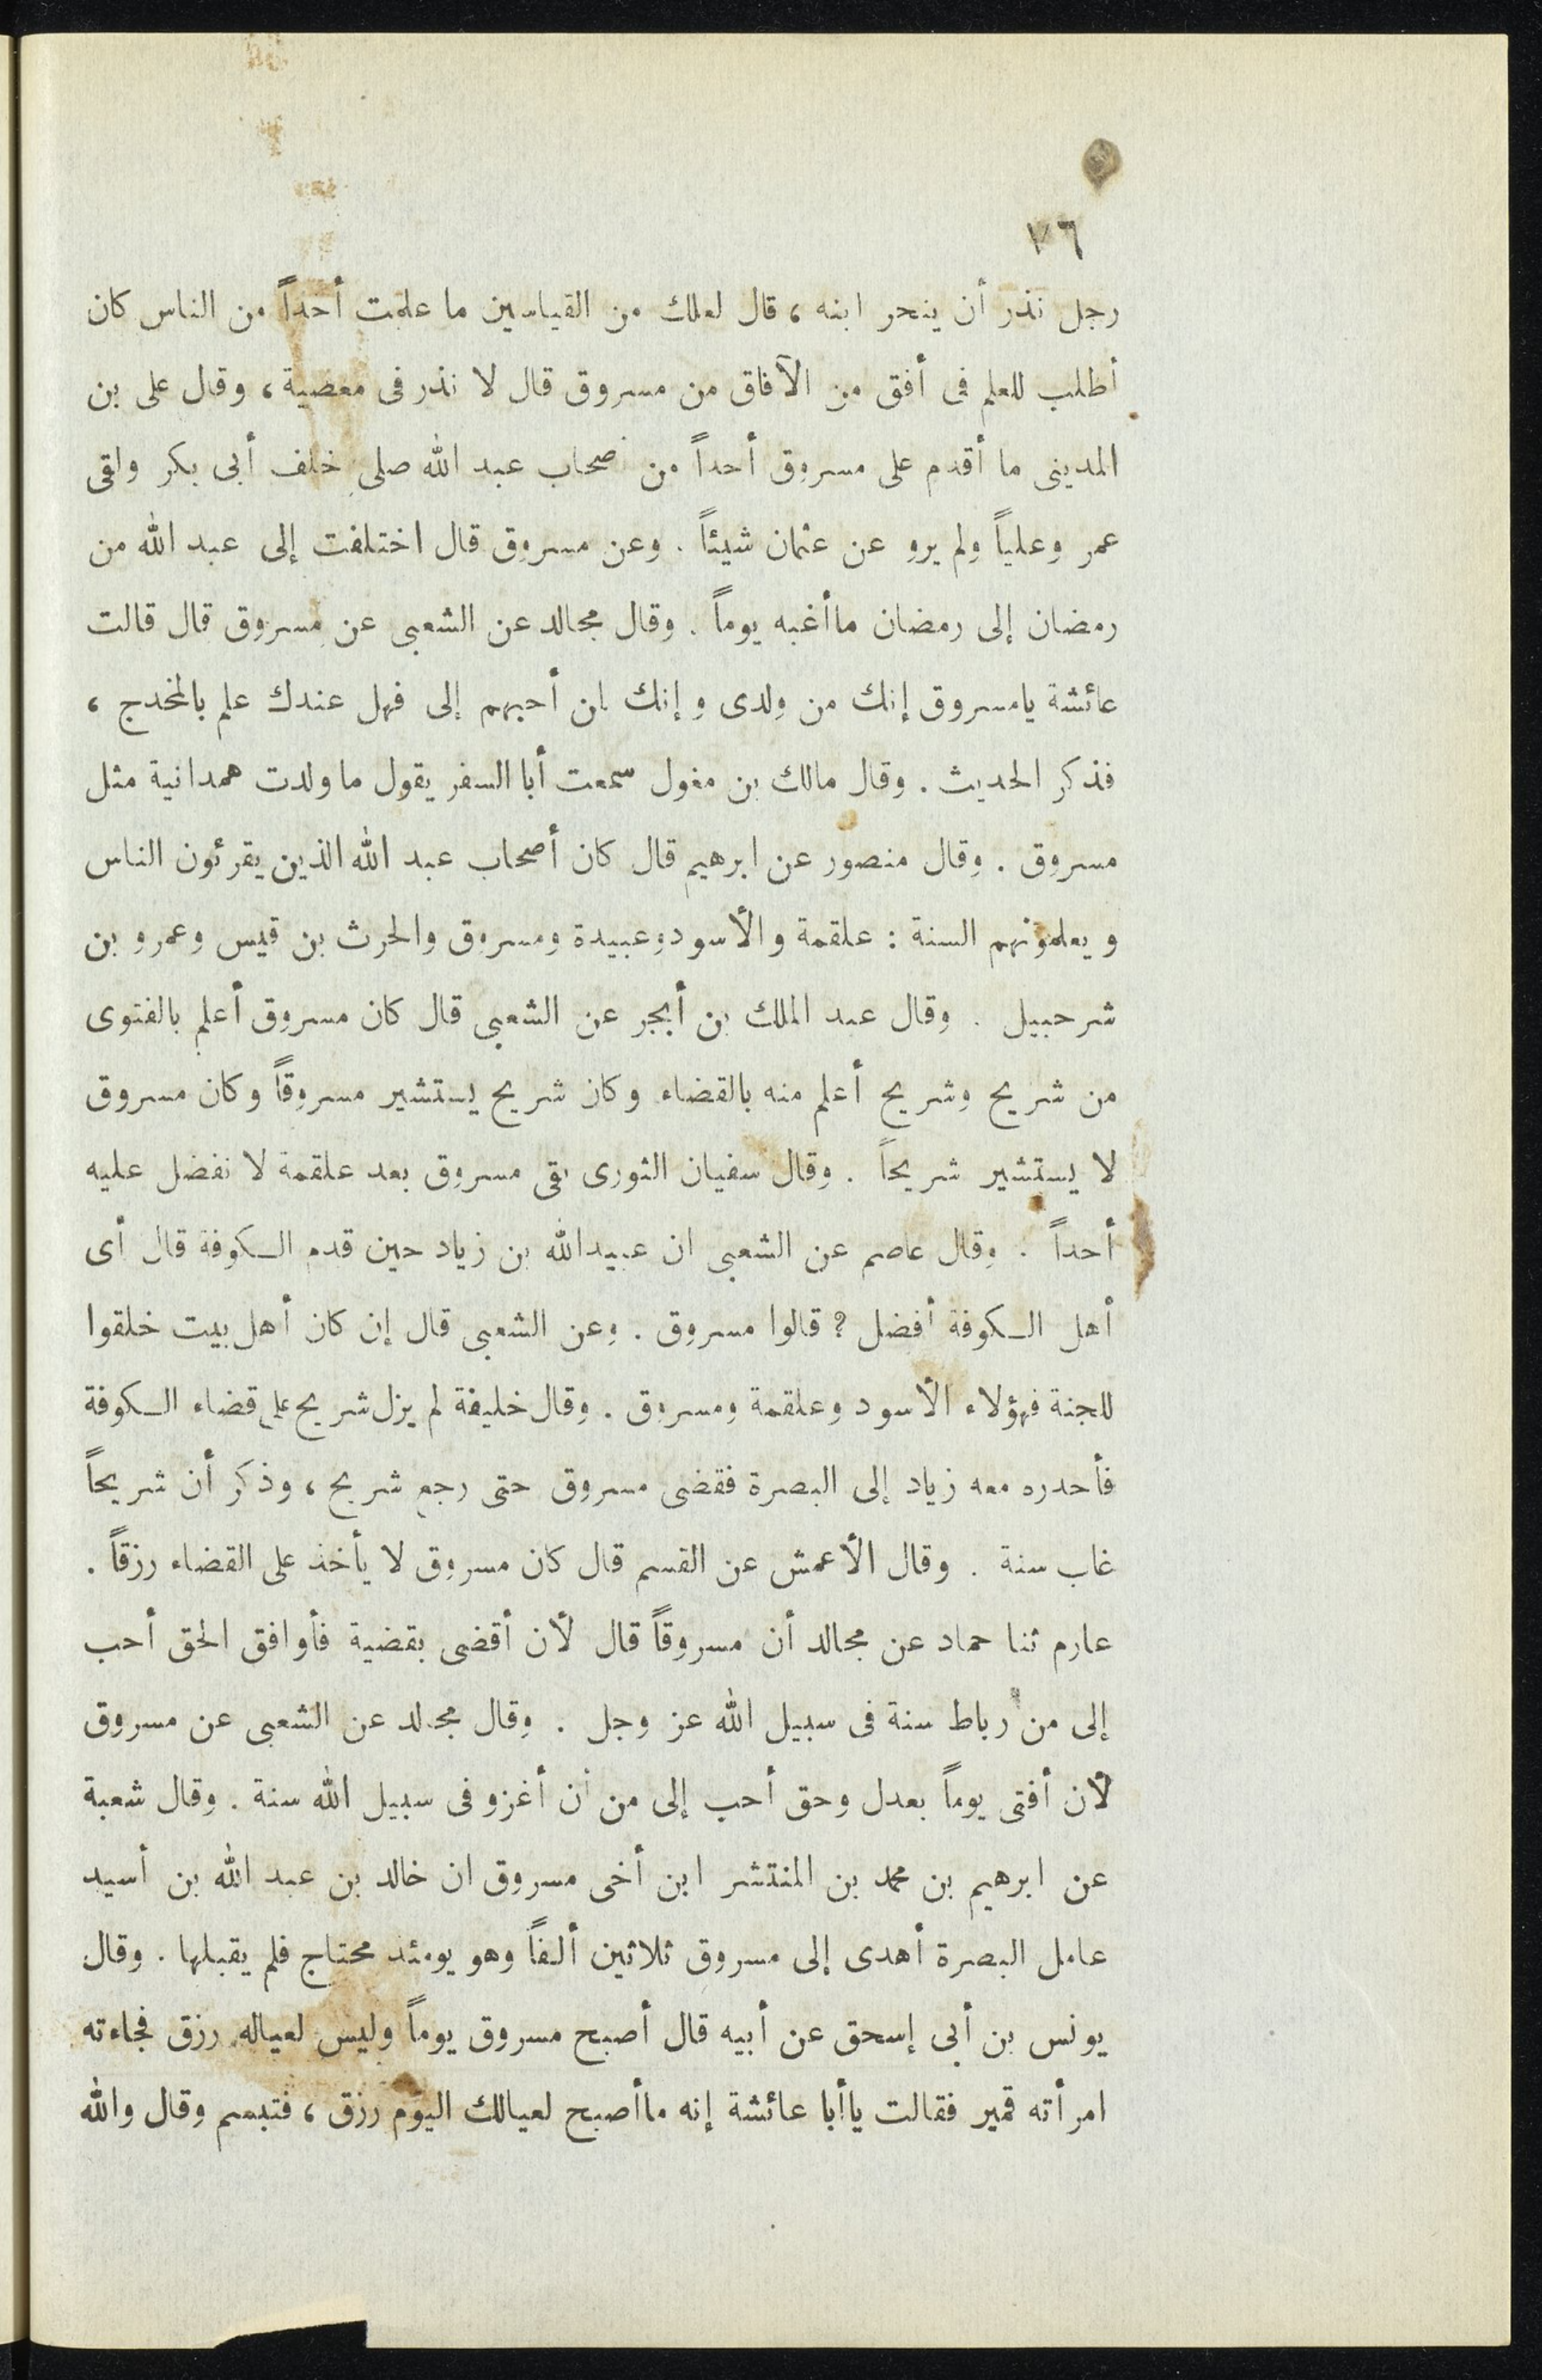 ٧٦
رجل نذر أن ينحر ابنه ، قال لعلك من القياسين ما علمت أحداً من الناس كان
أطلب للعلم فى أفق من الآفاق من مسروق قال لا نذر فى معصية ، وقال على بن
المدينى ما أقدم على مسروق أحداً من صحاب عبد الله صلى خلف أبى بكر ولقى
عمر وعلياً ولم يرو عن عثمان شيئاً . وعن مسروق قال اختلفت إلى عبد الله من
رمضان إلى رمضان ماأغبه يوماً . وقال مجالد عن الشعبى عن مسروق قال قالت
عائشة يامسروق إنك من ولدى وإنك لمن أحبهم إلى فهل عندك علم بالمخدج ،
فذكر الحديث . وقال مالك بن مغول سمعت أبا السفر يقول ما ولدت همدانية مثل
مسروق . وقال منصور عن ابرهيم قال كان أصحاب عبد الله الذين يقرئون الناس
ويعلمونهم السنة : علقمة والأسود وعبيدة ومسروق والحرث بن قيس وعمرو بن
شرحبيل . وقال عبد الملك بن أبجر عن الشعبى قال كان مسروق أعلم بالفتوى
من شريح وشريح أعلم منه بالقضاء وكان شريح يستشير مسروقاً وكان مسروق
لا يستشير شريحاً . وقال سفيان الثورى بقى مسروق بعد علقمة لا نفضل عليه
أحداً . وقال عاصم عن الشعبى ان عبيدالله بن زياد حين قدم الكوفة قال أى
أهل الكوفة أفضل ؟ قالوا مسروق . وعن الشعبى قال إن كان أهل بيت خلقوا
للجنة فهؤلاء الأسود وعلقمة ومسروق . وقال خليفة لم يزل شريح على قضاء الكوفة
فأحدره معه زياد إلى البصرة فقضى مسروق حتى رجع شريح ، وذكر أن شريحاً
غاب سنة . وقال الأعمش عن القسم قال كان مسروق لا يأخذ على القضاء رزقاً .
عارم ثنا حماد عن مجالد أن مسروقاً قال لأن أقضى بقضية فأوافق الحق أحب
إلى من رباط سنة فى سبيل الله عز وجل . وقال مجالد عن الشعبى عن مسروق
لأن أفتى يوماً بعدل وحق أحب إلى من أن أغزو فى سبيل الله سنة . وقال شعبة
عن ابرهيم بن محمد بن المنتشر ابن أخى مسروق ان خالد بن عبد الله بن أسيد
عامل البصرة أهدى إلى مسروق ثلاثين ألفاً وهو يومئذ محتاج فلم يقبلها . وقال
يونس بن أبى إسحق عن أبيه قال أصبح مسروق يوماً وليس لعياله رزق فجاءته
امرأته قمير فقالت ياأبا عائشة إنه ماأصبح لعيالك اليوم رزق ، فتبسم وقال والله